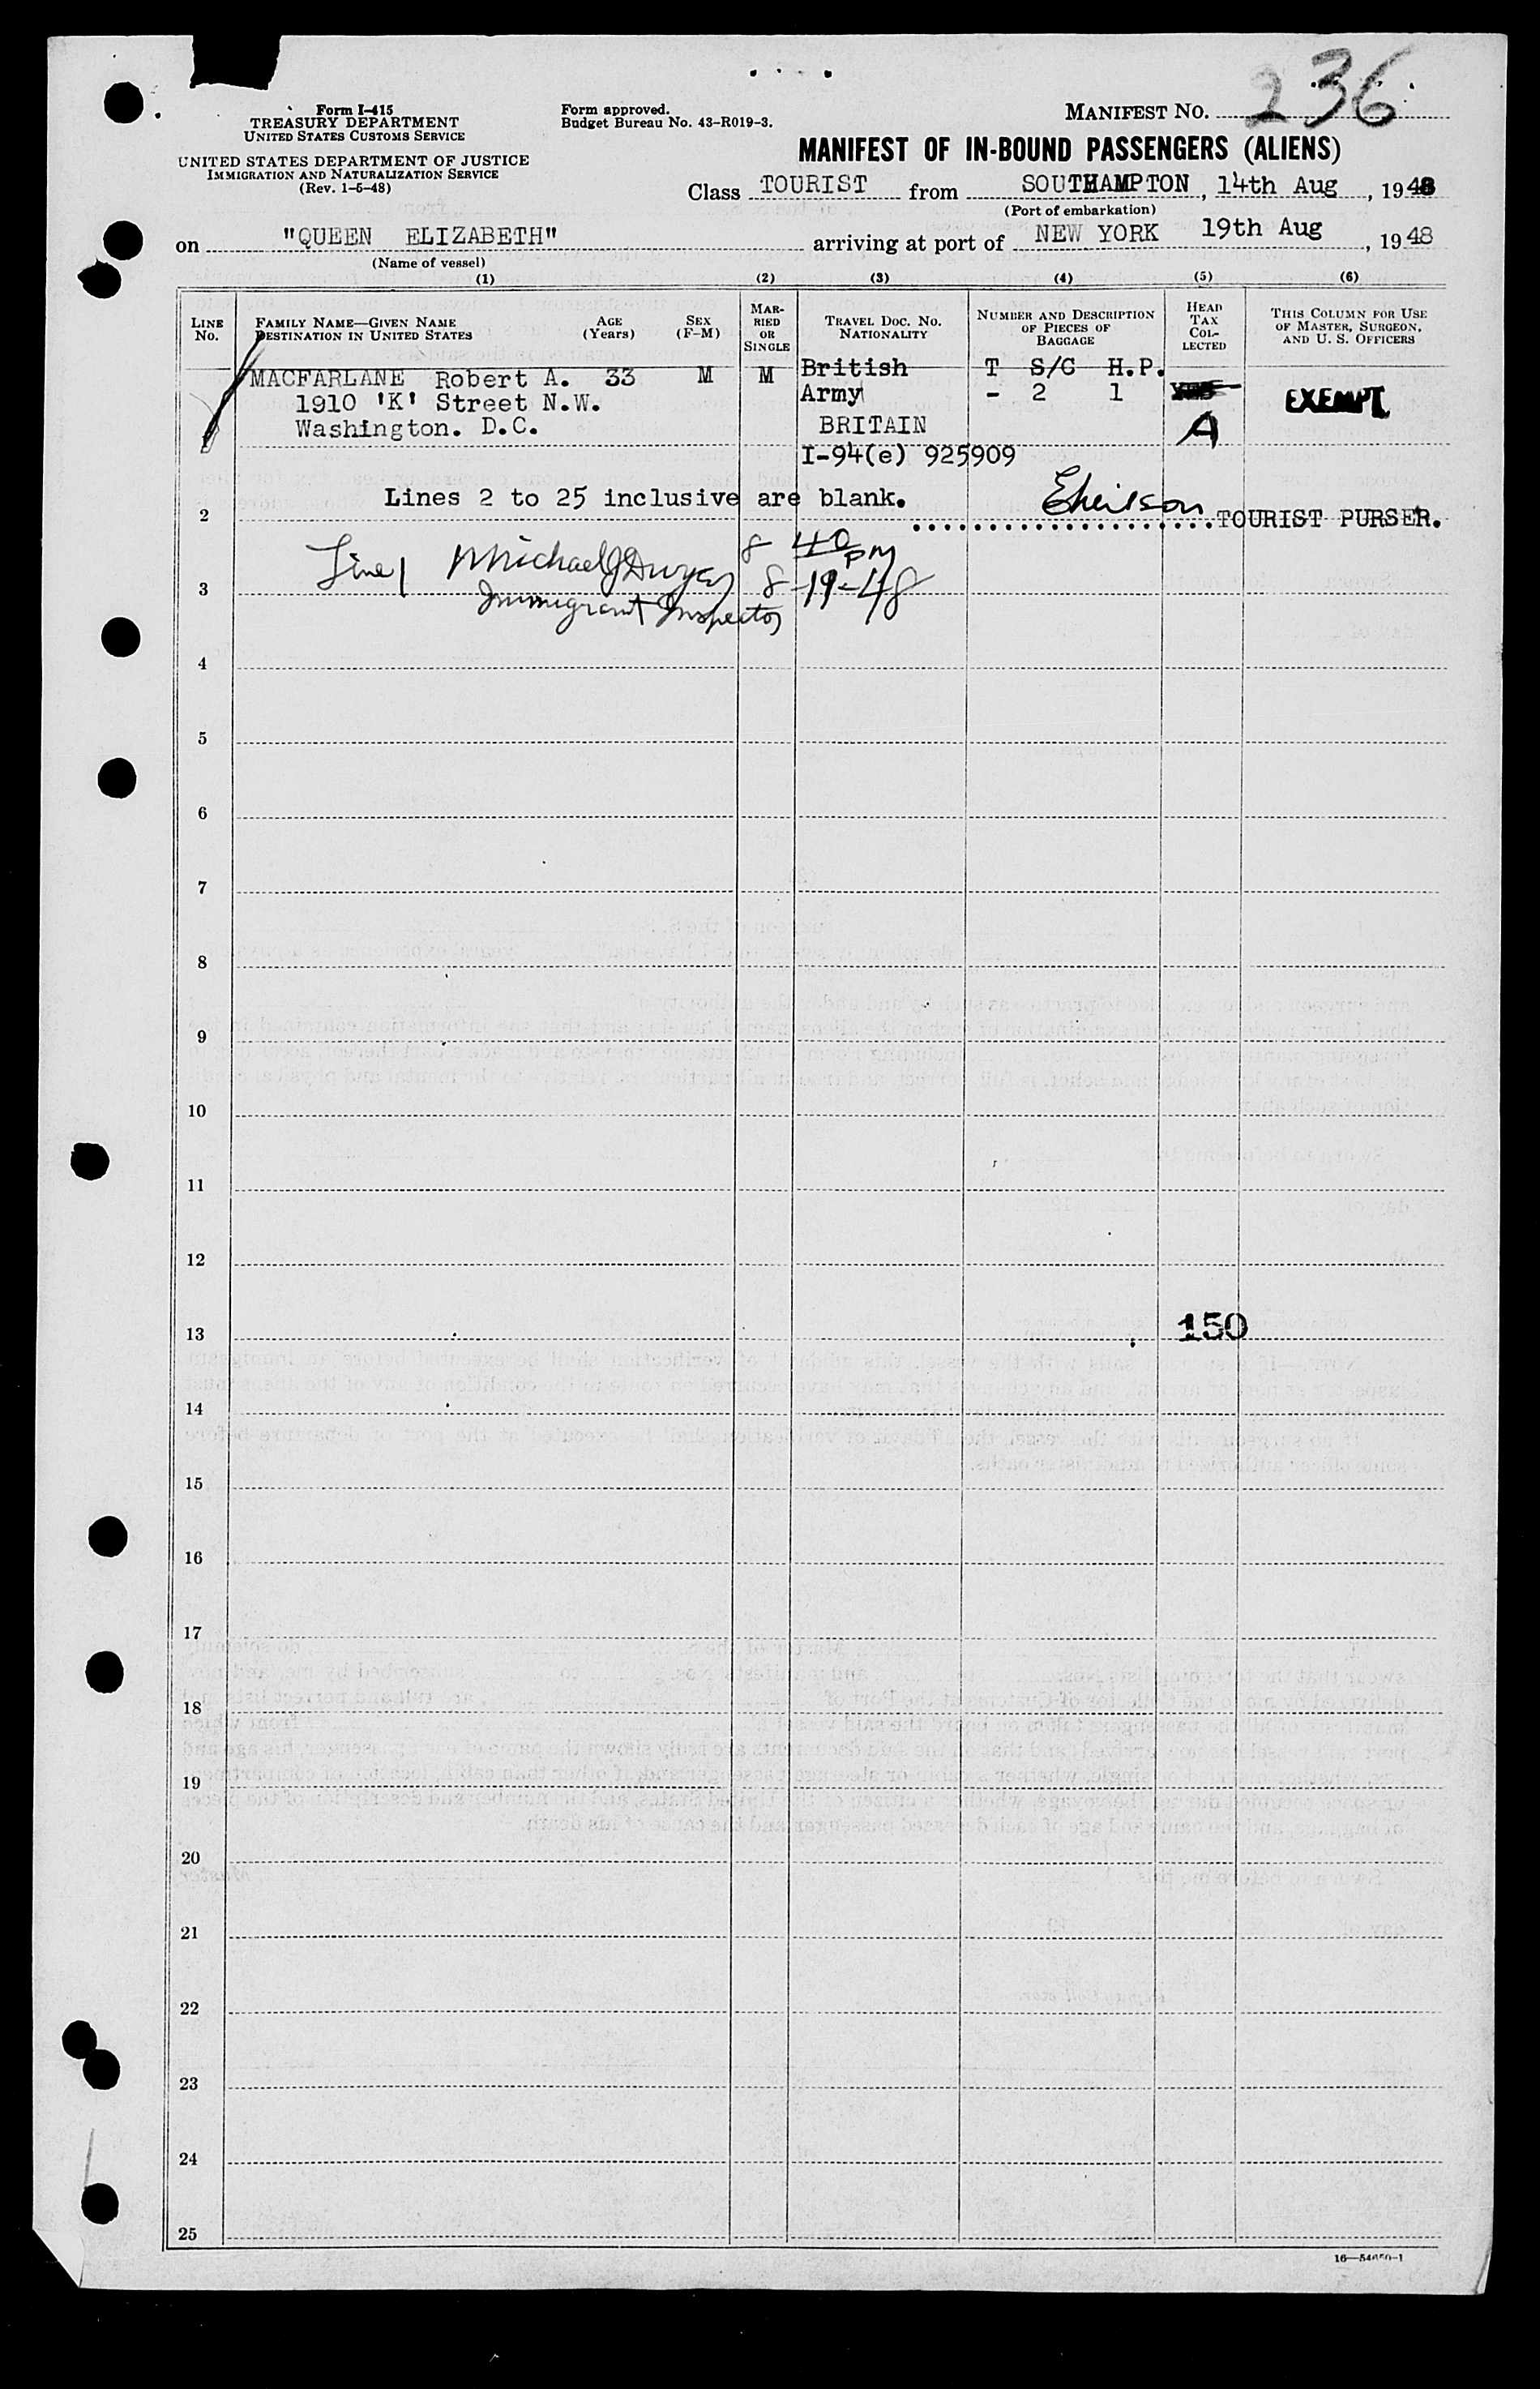 236
Form I-415
TREASURY DEPARTMENT
UNITED STATES CUSTOMS SERVICE
UNITED STATES DEPARTMENT OF JUSTICE
IMMIGRATION AND NATURALIZATION SERVICE
(Rev. 1-6-48)
Form approved.
Budget Bureau No. 43-R019-3.
MANIFEST NO.
MANIFEST OF IN-BOUND PASSENGERS (ALIENS)
Class TOURIST from SOUTHAMPTON, 14th Aug, 1948
(Port of embarkation)
on "QUEEN ELIZABETH" arriving at port of NEW YORK 19th Aug, 1948
(Name of vessel)
(1) (2) (3) (4) (5) (6)
LINE No.
FAMILY NAME—GIVEN NAME
DESTINATION IN UNITED STATES
AGE (Years)
SEX (F-M)
MARRIED OR SINGLE
TRAVEL DOC. NO.
NATIONALITY
NUMBER AND DESCRIPTION OF PIECES OF BAGGAGE
HEAD TAX COLLECTED
THIS COLUMN FOR USE OF MASTER, SURGEON, AND U. S. OFFICERS
MACFARLANE Robert A. 33 M M British T S/C H.P.
1910 'K' Street N.W. Army - 2 1 EXEMPT
Washington. D.C. BRITAIN A
I-94(e) 925909
2 Lines 2 to 25 inclusive are blank. TOURIST PURSER.
Line 1 Michael J Dwyer 8 40 PM
3 Immigrant Inspector 8-19-48
4
5
6
7
8
9
10
11
12
13 150
14
15
16
17
18
19
20
21
22
23
24
25